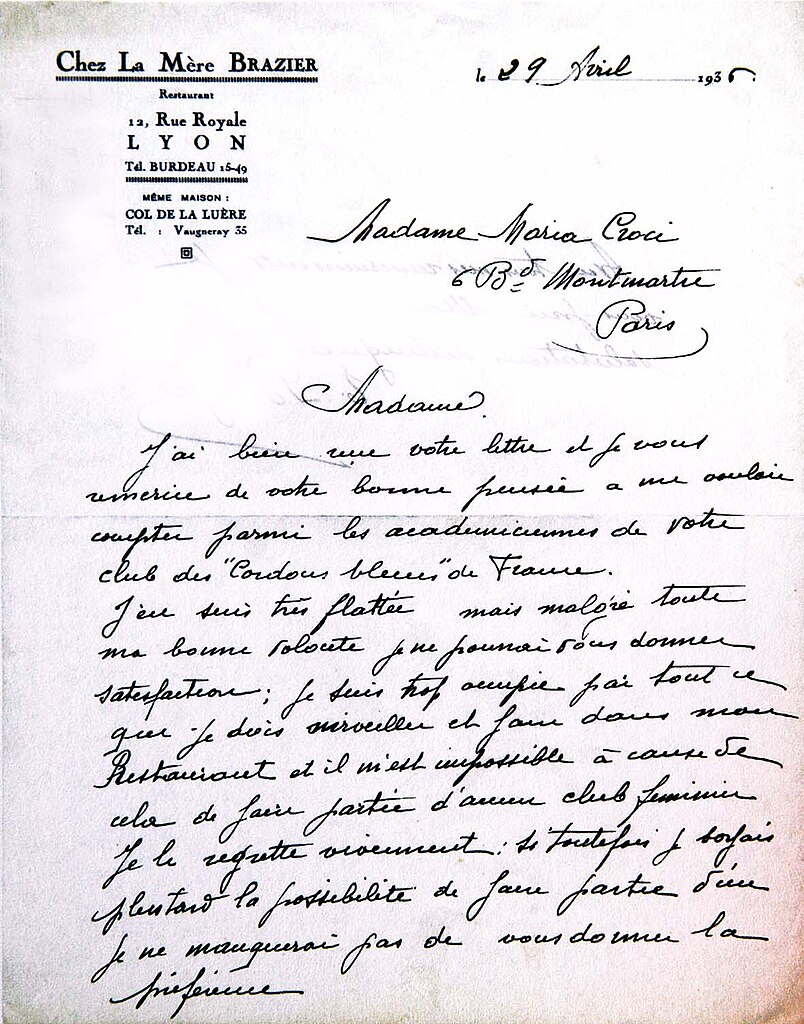 Chez La Mère BRAZIER
Restaurant
12, Rue Royale
LYON
Tél. BURDEAU 15-49
MÊME MAISON :
COL DE LA LUÈRE
Tél. : Vaugneray 35
le 29 Avril 1936.
Madame Maria Croci
6 Bd Montmartre
Paris
Madame.
J'ai bien reçue votre lettre et je vous
remercie de votre bonne pensée a me vouloir
compter parmi les academiciennes de votre
club des "Cordons bleus" de France.
J'en suis très flattée mais malgré toute
ma bonne volonte je ne pourrai vous donner
satisfaction; je suis trop occupée par tout ce
que je dois surveiller et faire dans mon
Restaurant et il m'est impossible à cause de
cela de faire partie d'aucun club feminin
Je le regrette vivement; si toutefois je voyais
plustard la possibilité de faire partie d'un
je ne manquerai pas de vous donner la
préférence